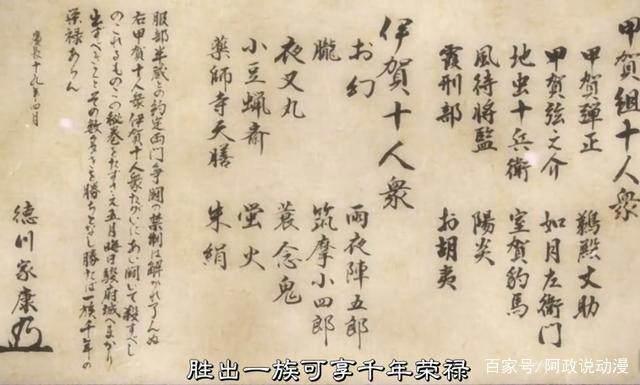 甲賀組十人衆
甲賀彈正　鵜殿丈助
甲賀弦之介　如月左衛門
地虫十兵衛　室賀豹馬
風待將監　陽炎
霞刑部　お胡夷
伊賀十人衆
お幻　雨夜陣五郎
朧　筑摩小四郎
夜叉丸　蓑念鬼
小豆蝋斎　螢火
薬師寺天膳　朱絹
服部半蔵との約定両門争闘の禁制は解かれ了んぬ
右甲賀十人衆伊賀十人衆たがいにあい闘いて殺すべし
のこれるものこの秘巻をたずさえ五月晦日駿府城へまかり
出ずべきことその数多きを勝ちとなし勝たば一族千年の
栄禄あらん
慶長十九年四月
徳川家康
胜出一族可享千年荣禄
百家号/阿政说动漫